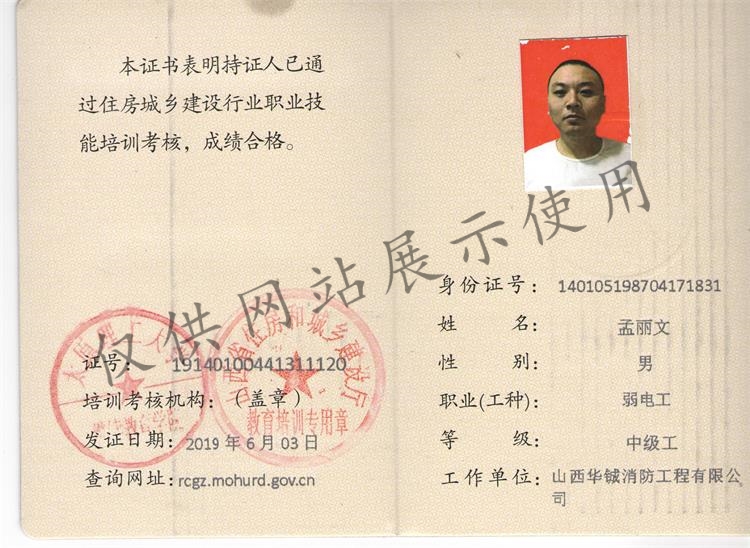 本证书表明持证人已通
过住房城乡建设行业职业技
能培训考核，成绩合格。
证号： 19140100441311120
培训考核机构：（盖章）
发证日期：2019 年 6 月 03 日
查询网址：rcgz.mohurd.gov.cn
山西省住房和城乡建设厅
教育培训专用章
身份证号： 140105198704171831
姓 名： 孟丽文
性 别： 男
职业(工种)： 弱电工
等 级： 中级工
工作单位：山西华铖消防工程有限公
司
仅供网站展示使用